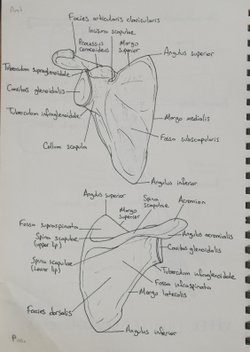 Facies articularis clavicularis
Incisura scapulae
Processus coracoideus
Margo superior
Angulus superior
Tuberculum supraglenoidale
Cavitas glenoidalis
Tuberculum infraglenoidale
Margo medialis
Fossa subscapularis
Collum scapulae
Angulus inferior
Angulus superior
Margo superior
Spina scapulae
Acromion
Fossa supraspinata
Angulus acromialis
Spina scapulae (upper lip)
Cavitas glenoidalis
Spina scapulae (lower lip)
Tuberculum infraglenoidale
Fossa infraspinata
Margo lateralis
Facies dorsalis
Angulus inferior